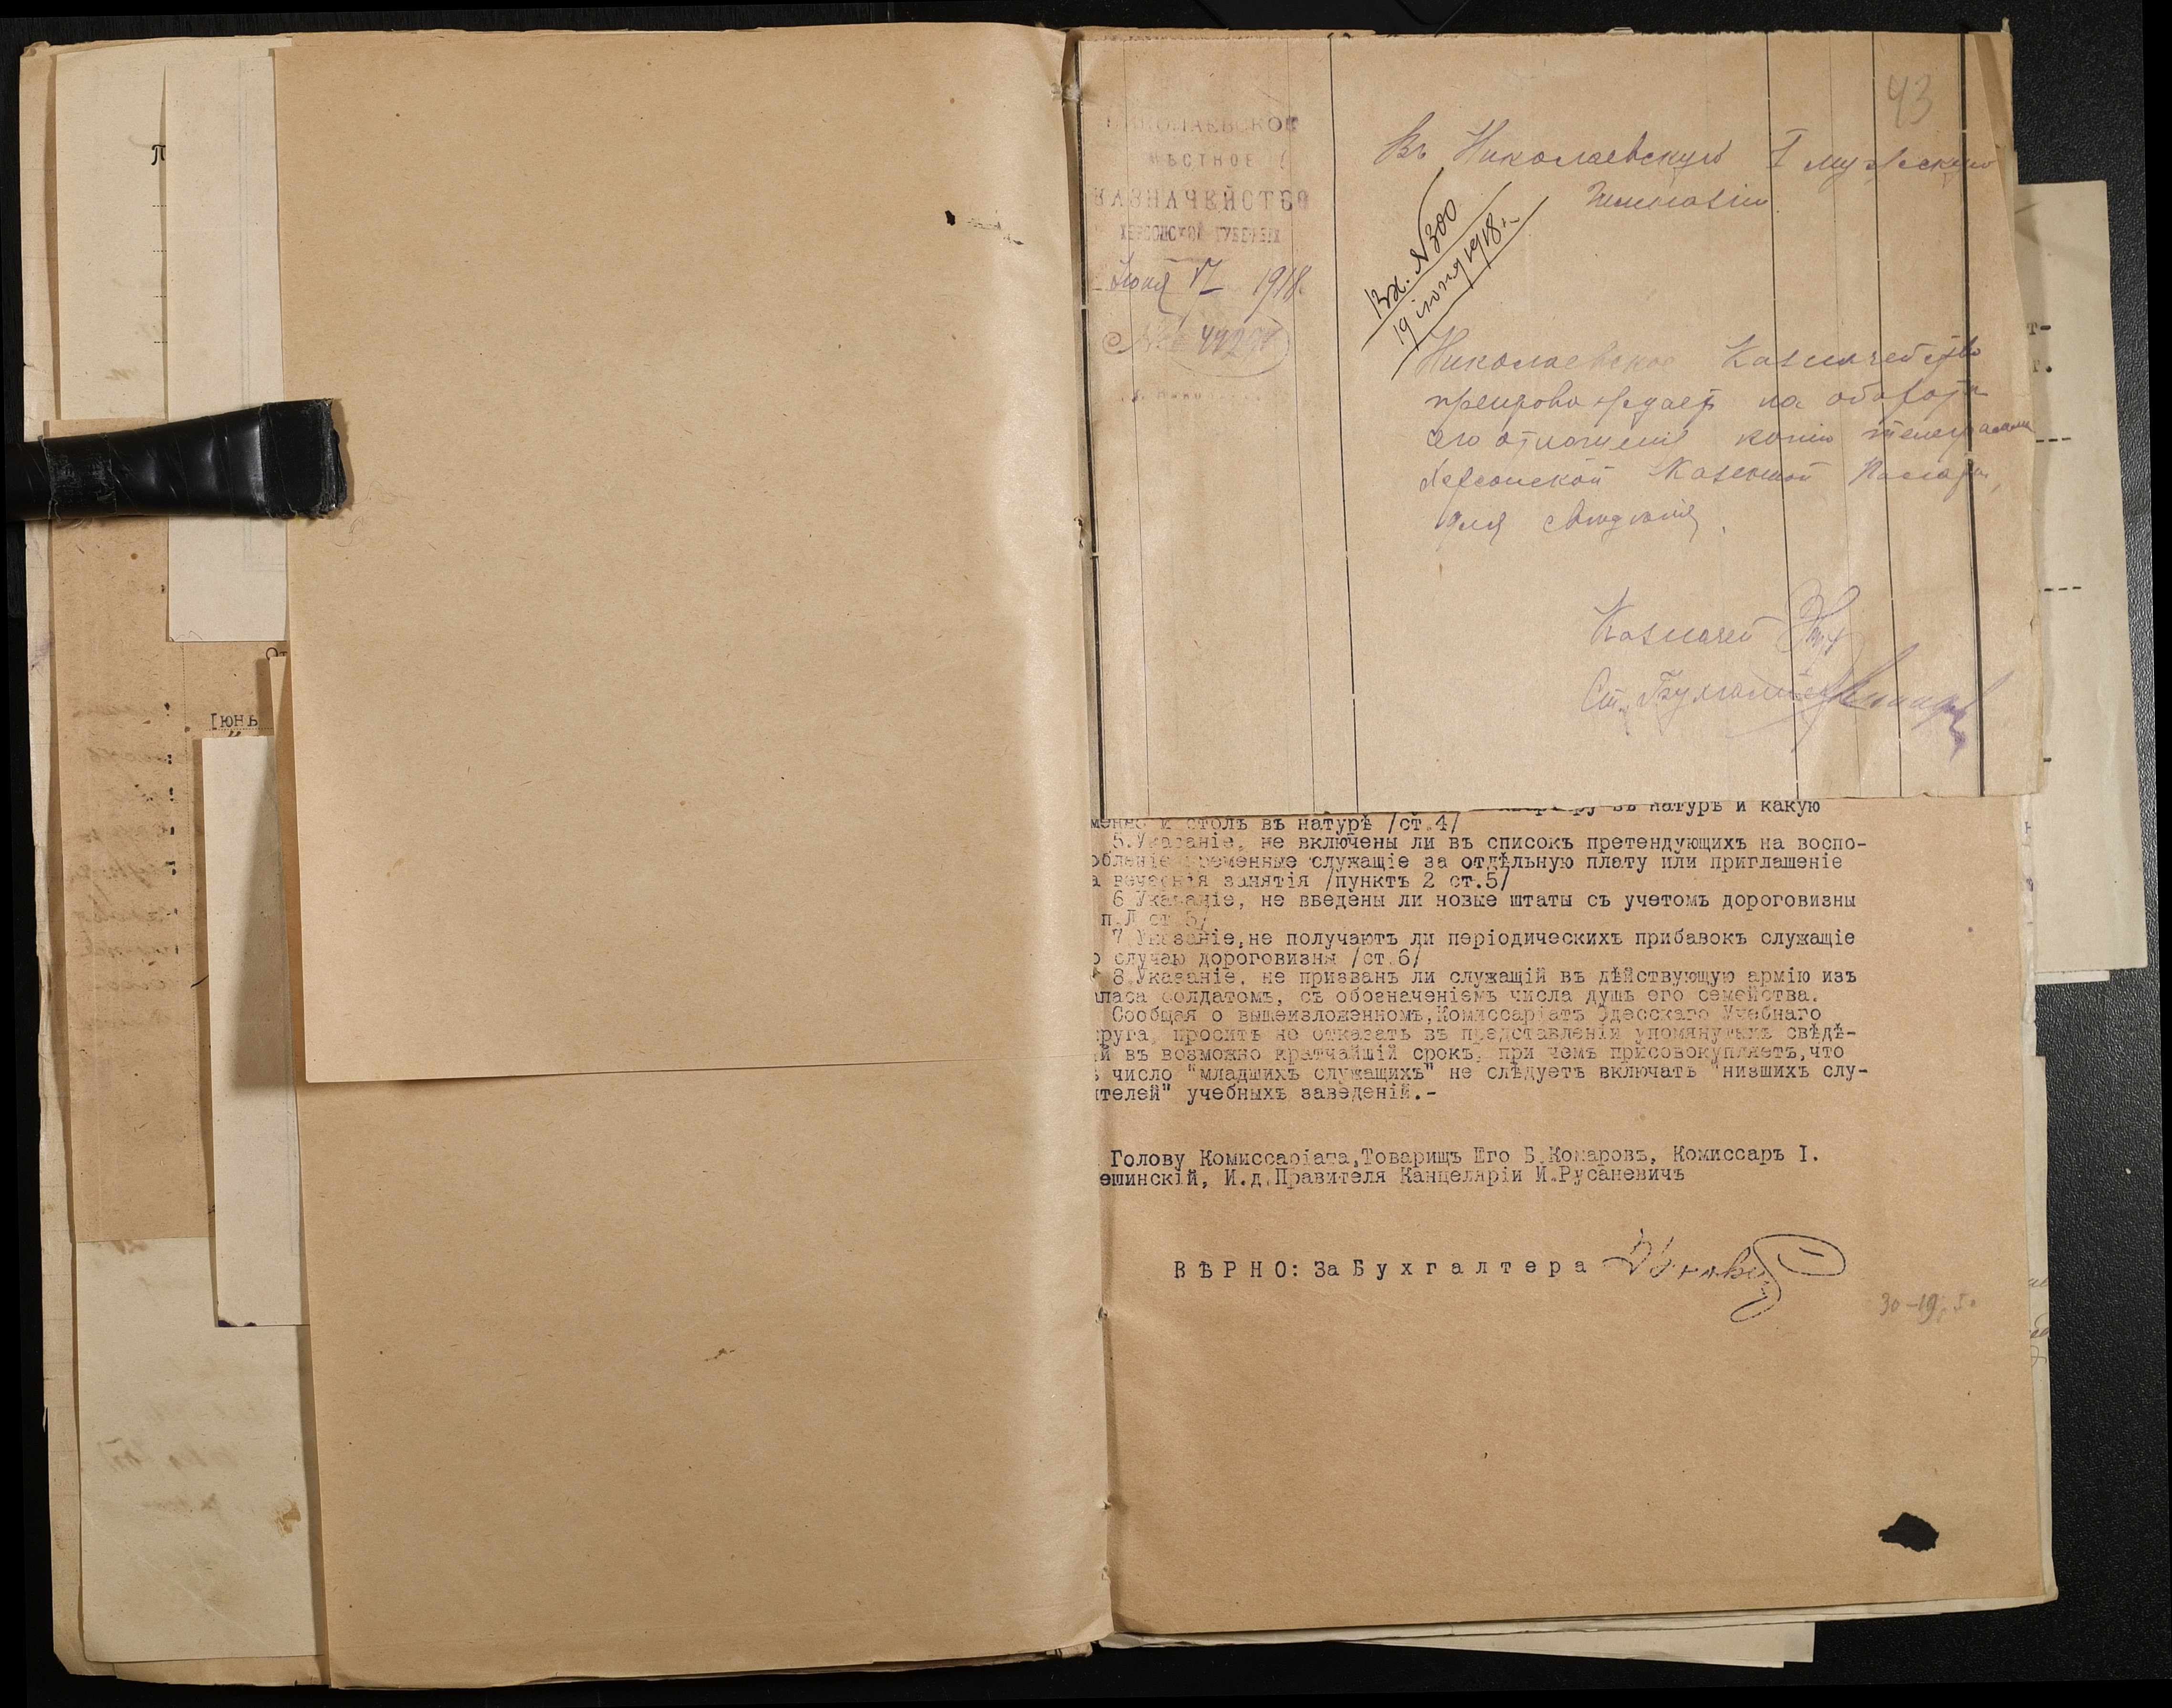 43
НИКОЛАЕВСКОЕ
МѢСТНОЕ
КАЗНАЧЕЙСТВО
ХЕРСОНСКОЙ ГУБЕРНІИ
Іюня 17 1918
№
Въ Николаевскую I мужскую
Гимназію
Вх. №300
19 іюня 1918 г.
Николаевское Казначейство
препровождаетъ на оборотѣ
его отношенія копію телеграммы
Херсонской Казенной Палаты,
для свѣдѣнія.
Казначей
Ст. Бухгалтеръ
въ натурѣ и какую
менно и столъ въ натурѣ /ст.4/
5.Указаніе, не включены ли въ списокъ претендующихъ на воспо-
обленіе временные служащіе за отдѣльную плату или приглашеніе
а вечернія занятія /пунктъ 2 ст.5/
6.Указаніе, не введены ли новые штаты съ учетомъ дороговизны
п.Л ст.5/
7.Указаніе,не получаютъ ли періодическихъ прибавокъ служащіе
о случаю дороговизны /ст.6/
8.Указаніе, не призванъ ли служащій въ дѣйствующую армію изъ
апаса солдатомъ, съ обозначеніемъ числа душъ его семейства.
Сообщая о вышеизложенномъ,Комиссаріатъ Одесскаго Учебнаго
круга, проситъ не отказать въ представленіи упомянутыхъ свѣдѣ-
й въ возможно кратчайшій срокъ, при чемъ присовокупляетъ,что
ъ число "младшихъ служащихъ" не слѣдуетъ включать "низшихъ слу-
ителей" учебныхъ заведеній.-
Голову Комиссаріата,Товарищъ Его Б.Комаровъ, Комиссаръ І.
ешинскій, И.д.Правителя Канцеляріи И.Русаневичъ
ВѢРНО: За Бухгалтера
Іюнь